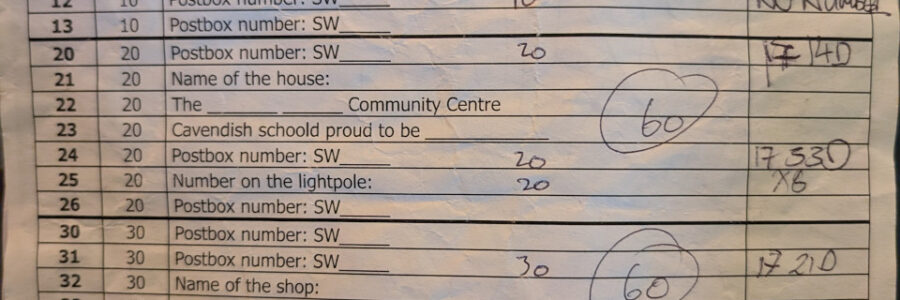 12 10 Postbox number: SW_____ 10 No Number
13 10 Postbox number: SW_____
20 20 Postbox number: SW_____ 20 17 14D
21 20 Name of the house:
22 20 The _______ ______ Community Centre 60
23 20 Cavendish schoold proud to be ____________
24 20 Postbox number: SW_____ 20 17 53D
25 20 Number on the lightpole: 20 X6
26 20 Postbox number: SW_____
30 30 Postbox number: SW_____
31 30 Postbox number: SW_____ 30 17 21D
32 30 Name of the shop: 60